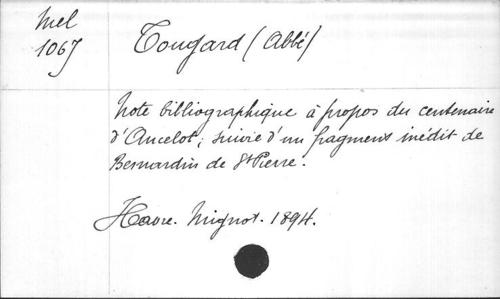 Mel
1067
Tougard (Abbé)
Note bibliographique à propos du centenaire
d'Ancelot; suivie d'un fragment inédit de
Bernardin de St Pierre.
Havre. Mignot. 1894.